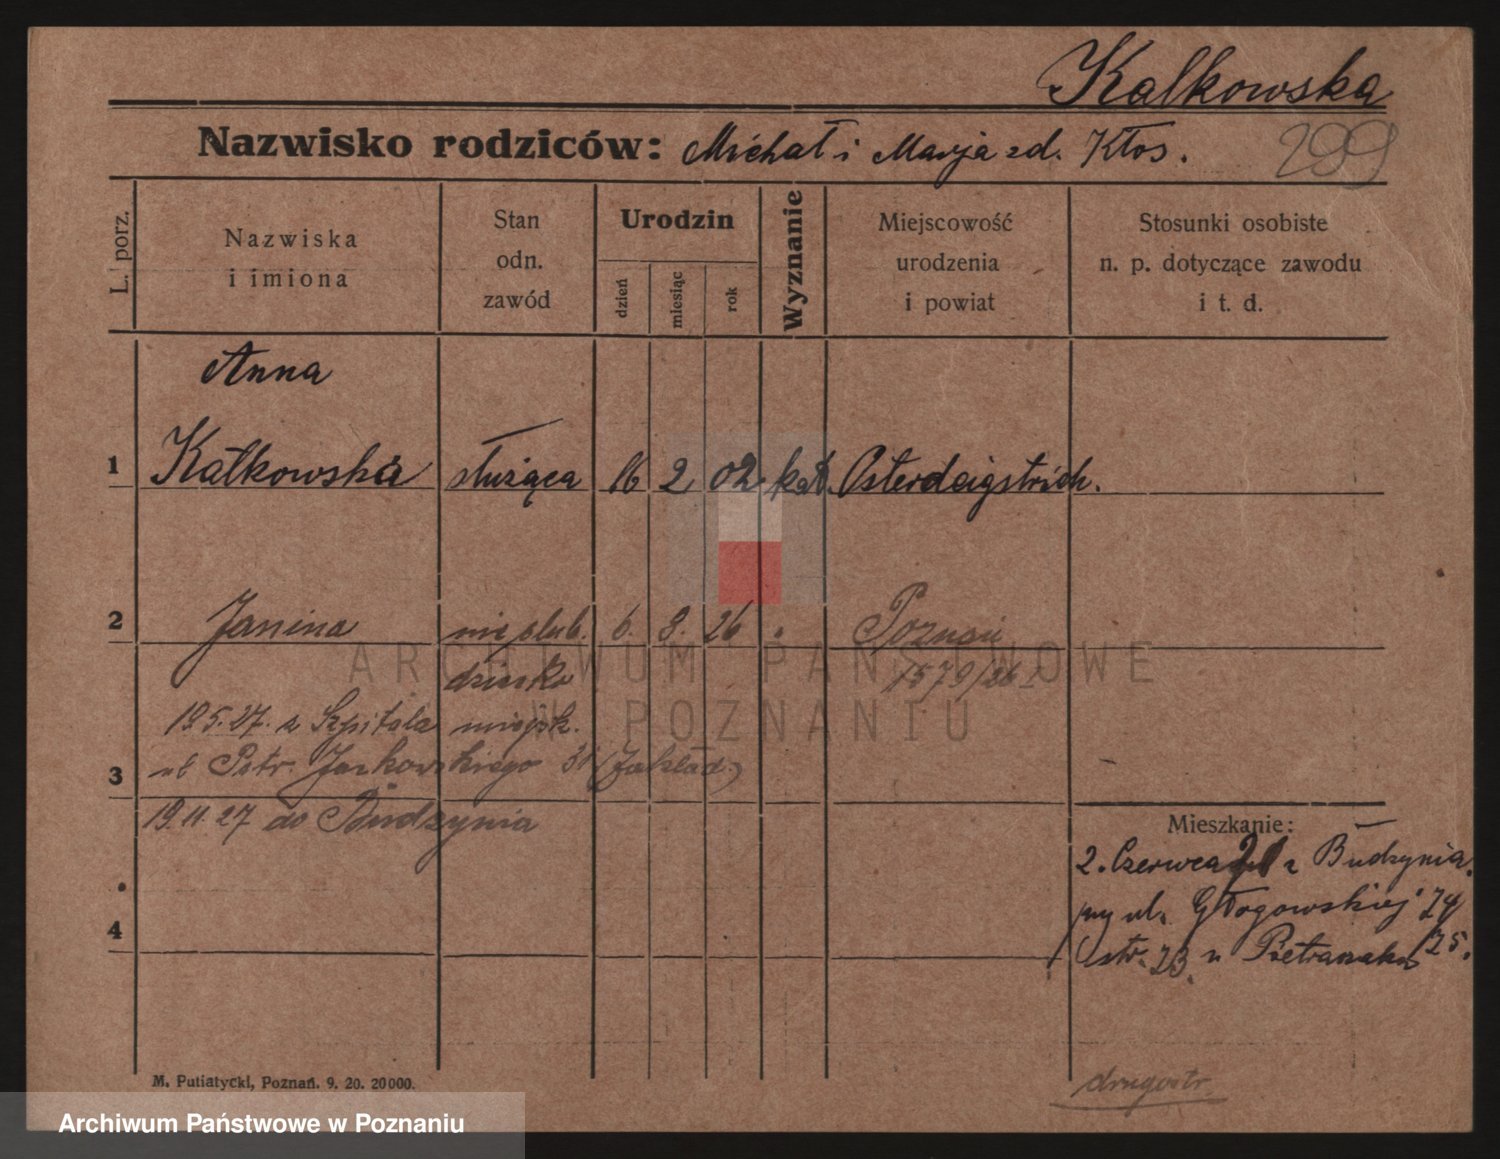 Kalkowska
Nazwisko rodziców: Michał i Marja zd. Kłos.
299
L. porz.
Nazwiska
i imiona
Stan
odn.
zawód
Urodzin
dzień
miesiąc
rok
Wyznanie
Miejscowość
urodzenia
i powiat
Stosunki osobiste
n. p. dotyczące zawodu
i t. d.
Anna
1 Kałkowska służąca 16 2 02 kat. Osterdeigstrich.
2 Janina nieślub. 6. 3. 26 " Poznań
dziecko 1579/26
19.5.27. z Szpitala miejsk.
3 ul Piotr. Jackowskiego 31 (Zakład)
19.11.27 do Budzynia
Mieszkanie:
2. Czerwca z Budzynia.
przy ul. Głogowskiej 74
4 75.
ARCHIWUM PAŃSTWOWE
W POZNANIU
M. Putiatycki, Poznań. 9. 20. 20000.
drugostr.
Archiwum Państwowe w Poznaniu